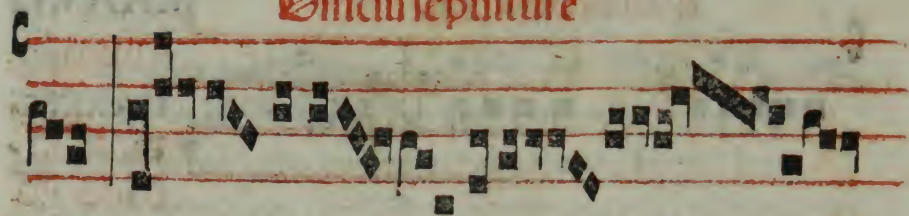 Officiū sepulture